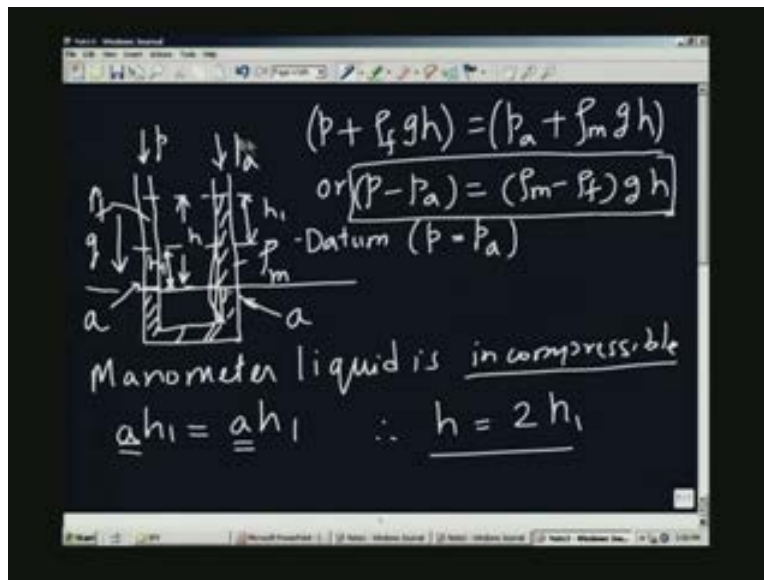 Note3 - Windows Journal
File Edit View Insert Actions Tools Help
p
p_a
(p + ρ_f g h) = (p_a + ρ_m g h)
or (p - p_a) = (ρ_m - ρ_f) g h
ρ_f
g
h
h₁
h₁
ρ_m
Datum (p = p_a)
a
a
Manometer liquid is incompressible
a h₁ = a h₁ ∴ h = 2 h₁